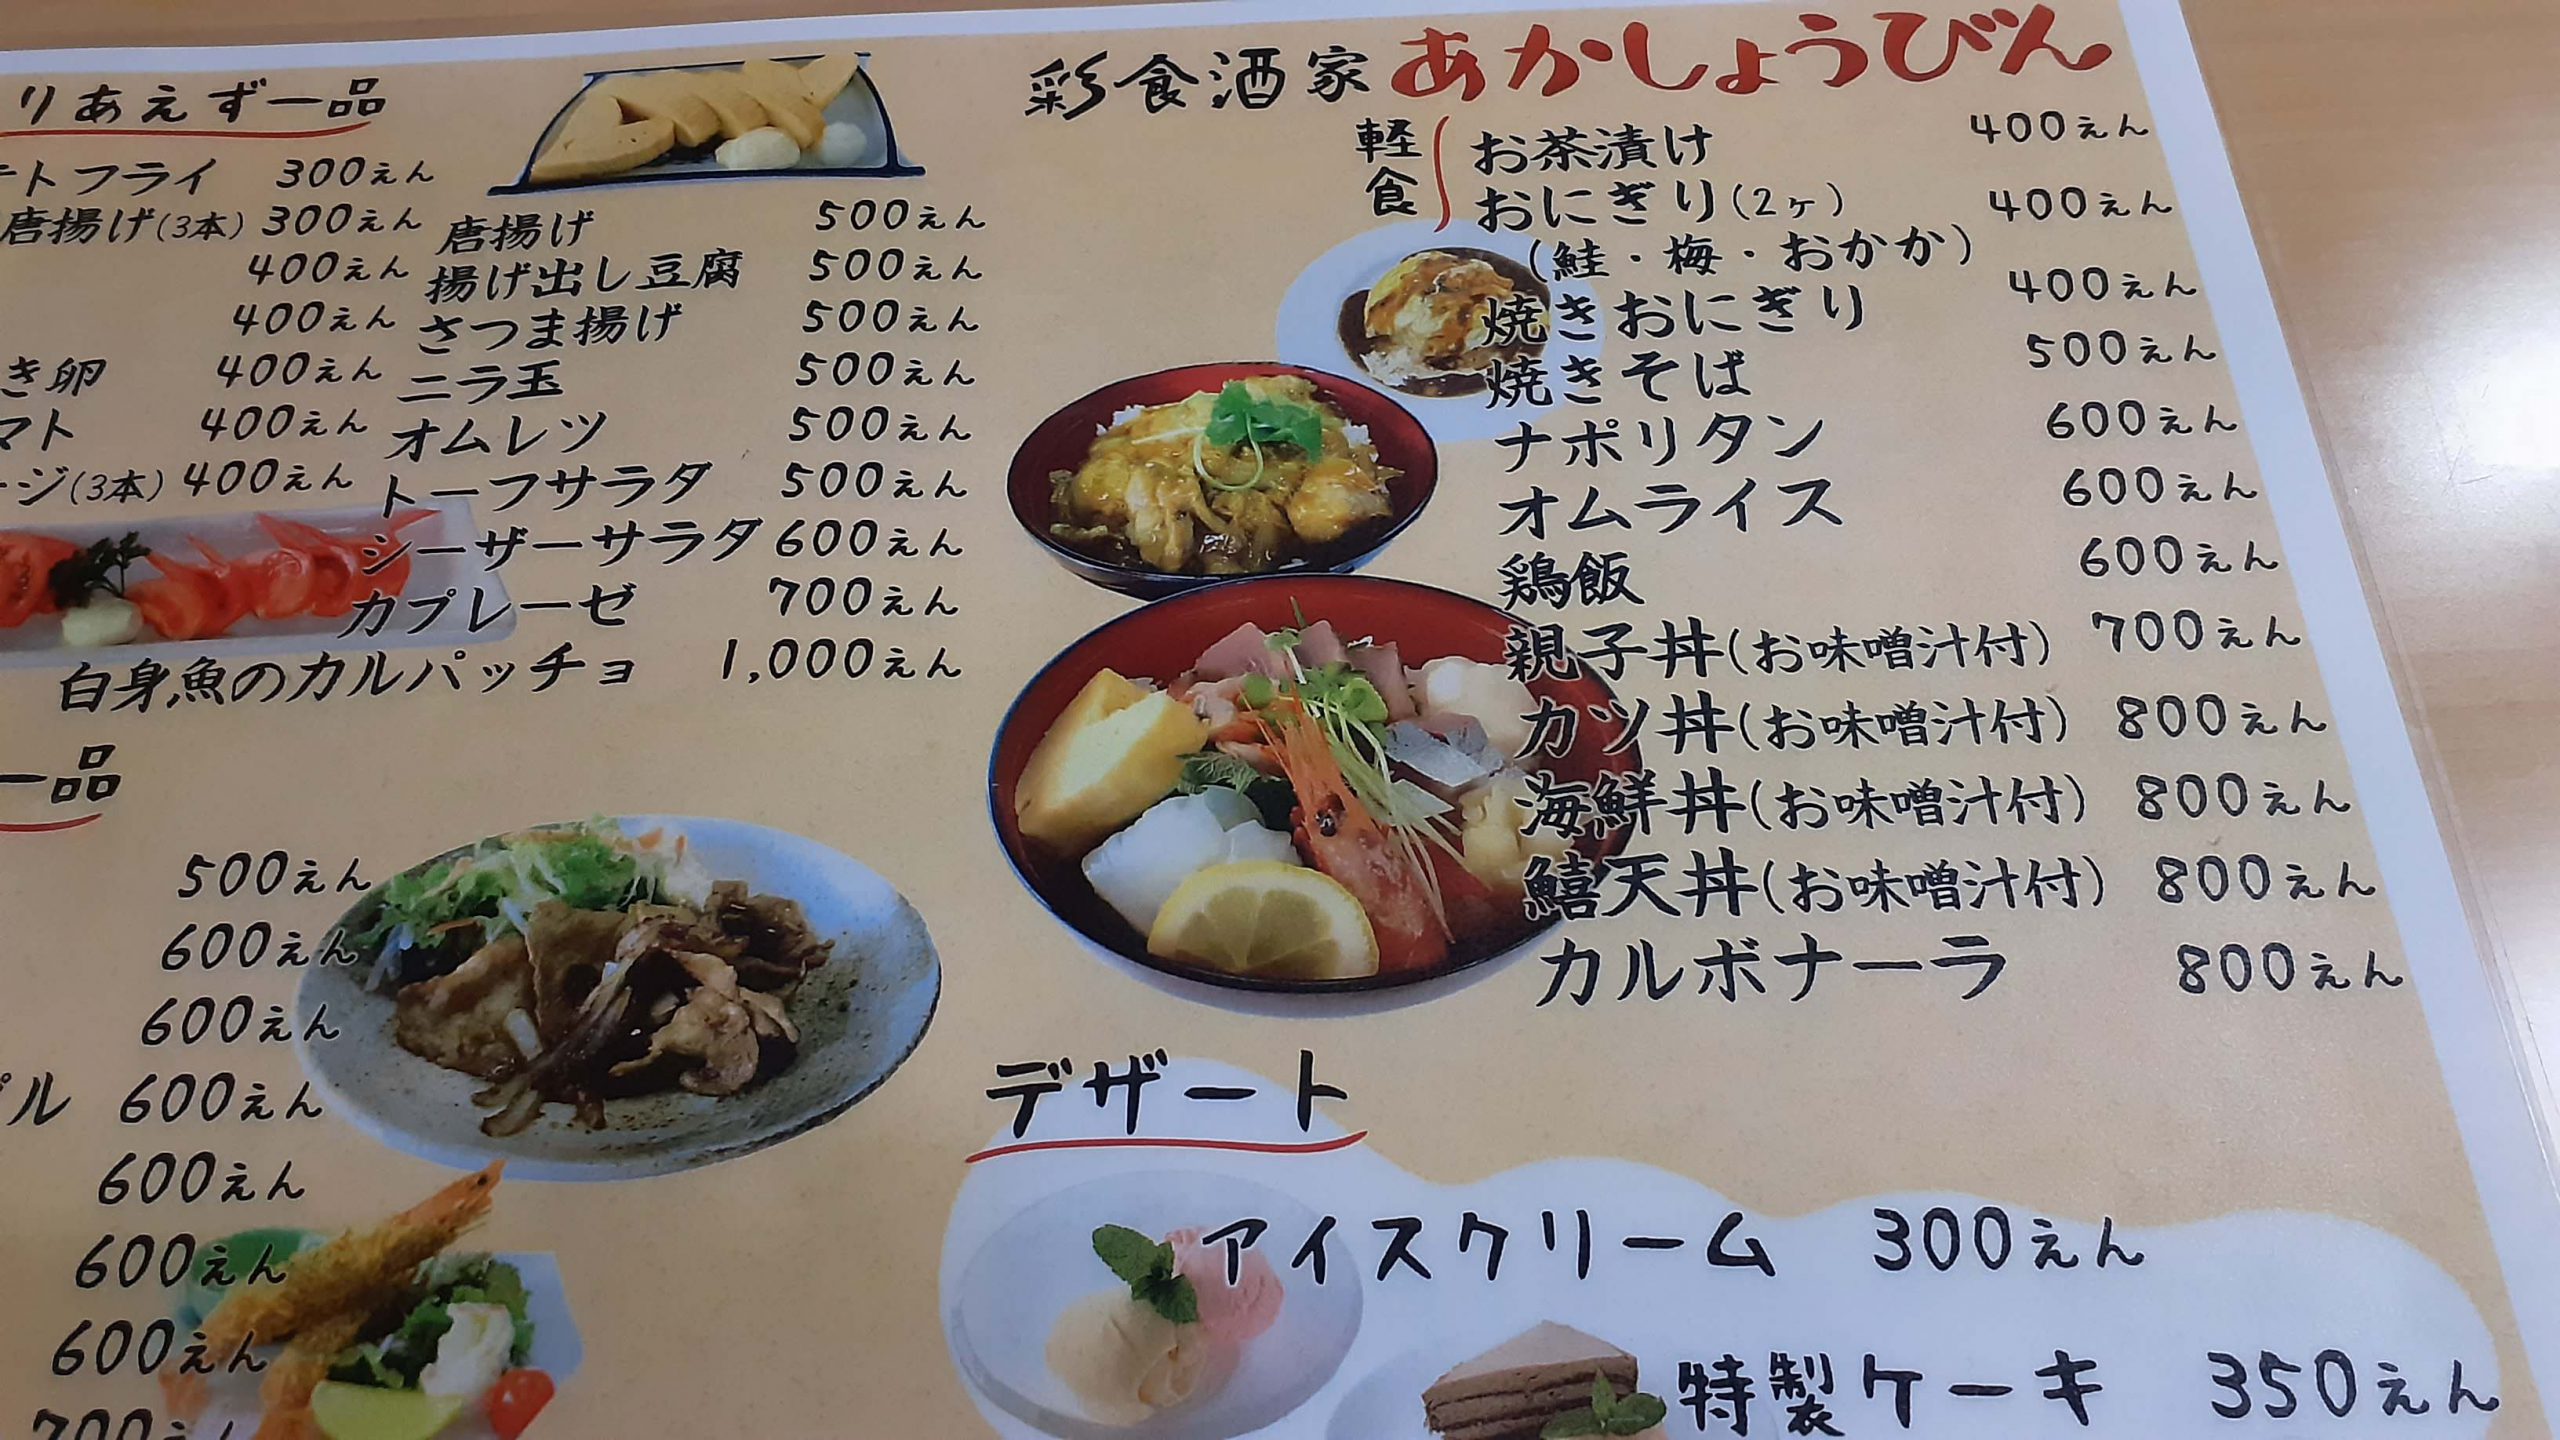 彩食酒家 あかしょうびん
りあえず一品
テトフライ 300えん
唐揚げ(3本) 300えん
400えん
400えん
き卵 400えん
マト 400えん
ージ(3本) 400えん
唐揚げ 500えん
揚げ出し豆腐 500えん
さつま揚げ 500えん
ニラ玉 500えん
オムレツ 500えん
トーフサラダ 500えん
シーザーサラダ 600えん
カプレーゼ 700えん
白身魚のカルパッチョ 1,000えん
一品
500えん
600えん
600えん
プル 600えん
600えん
600えん
600えん
700えん
軽食
お茶漬け 400えん
おにぎり(2ヶ) 400えん
(鮭・梅・おかか)
焼きおにぎり 400えん
焼きそば 500えん
ナポリタン 600えん
オムライス 600えん
鶏飯 600えん
親子丼(お味噌汁付) 700えん
カツ丼(お味噌汁付) 800えん
海鮮丼(お味噌汁付) 800えん
鱚天丼(お味噌汁付) 800えん
カルボナーラ 800えん
デザート
アイスクリーム 300えん
特製ケーキ 350えん